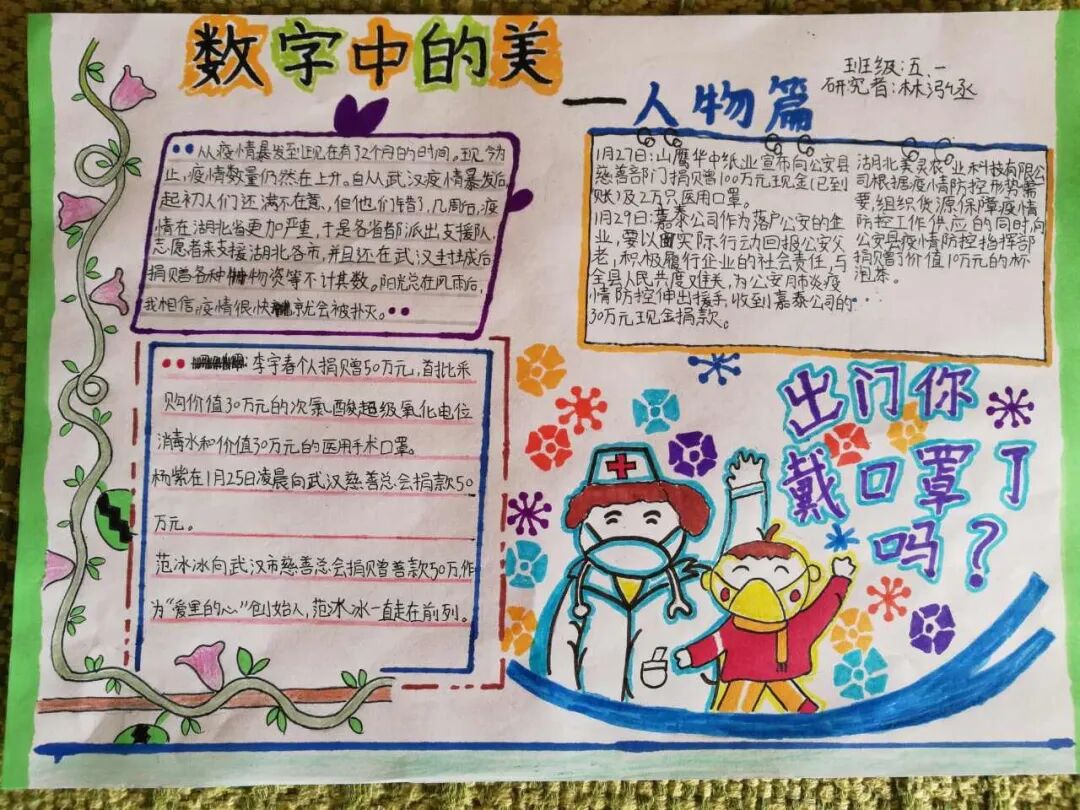 数字中的美
——人物篇
班级:五.一
研究者:林泓丞
从疫情暴发到现在有了2个月的时间。现今为
止,疫情数量仍然在上升。自从武汉疫情暴发后,
起初人们还满不在意,但他们错了,几周后,疫
情在湖北省更加严重,于是各省都派出支援队、
志愿者来支援湖北各市,并且还在武汉封城后
捐赠各种物资等不计其数。阳光总在风雨后,
我相信,疫情很快就会被扑灭。
李宇春个人捐赠50万元,首批采
购价值30万元的次氯酸超级氧化电位
消毒水和价值30万元的医用手术口罩。
杨紫在1月25日凌晨向武汉慈善总会捐款50
万元。
范冰冰向武汉市慈善总会捐赠善款50万,作
为“爱里的心”创始人,范冰冰一直走在前列。
1月27日:山鹰华中纸业宣布向公安县
慈善部门捐赠100万元现金(已到
账)及2万只医用口罩。
1月29日:嘉泰公司作为落户公安的企
业,要以实际行动回报公安父
老,积极履行企业的社会责任,与
全县人民共度难关,为公安肺炎疫
情防控伸出援手,收到嘉泰公司的
30万元现金捐款。
湖北美灵农业科技有限公
司根据疫情防控形势需
要,组织货源保障疫情
防控工作供应的同时,向
公安县疫情防控指挥部
捐赠了价值10万元的杯
泡茶。
出门你
戴口罩了
吗?